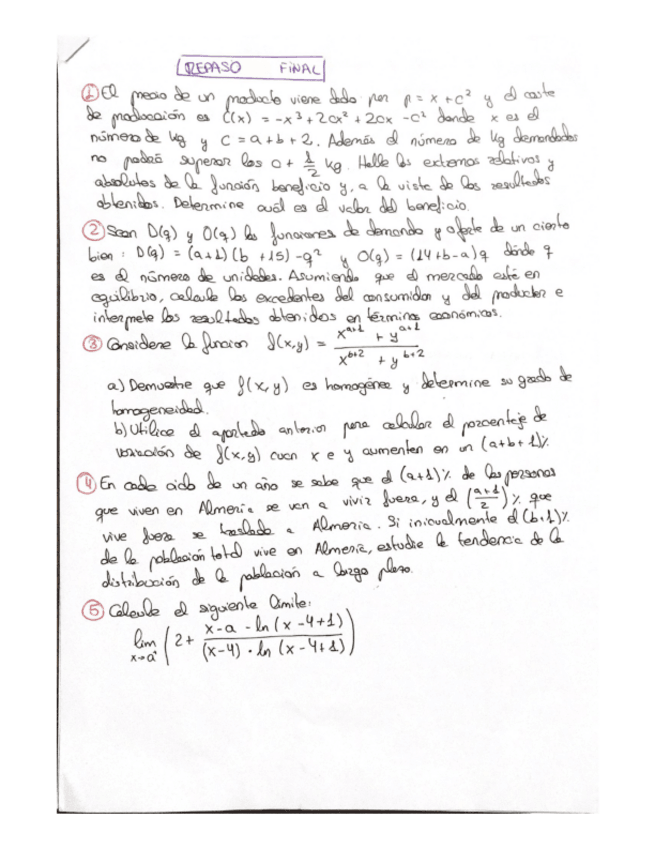 REPASO FINAL
① El precio de un producto viene dado por p = x + c² y el coste
de producción es C(x) = -x³ + 2cx² + 2cx - c² donde x es el
número de kg y c = a + b + 2. Además el número de kg demandados
no podrá superar los c + 1/2 kg. Halle los extremos relativos y
absolutos de la función beneficio y, a la vista de los resultados
obtenidos. Determine cuál es el valor del beneficio.
② Sean D(q) y O(q) las funciones de demanda y oferta de un cierto
bien: D(q) = (a+1)(b+15) - q² y O(q) = (14+b-a)q dónde q
es el número de unidades. Asumiendo que el mercado esté en
equilibrio, calcule los excedentes del consumidor y del productor e
interprete los resultados obtenidos en términos económicos.
③ Considere la función f(x,y) = (x^{a+1} + y^{a+1}) / (x^{b+2} + y^{b+2})
a) Demuestre que f(x,y) es homogénea y determine su grado de
homogeneidad.
b) Utilice el apartado anterior para calcular el porcentaje de
variación de f(x,y) cuan x e y aumenten en un (a+b+1)%
④ En cada ciclo de un año se sabe que el (a+1)% de las personas
que viven en Almería se van a vivir fuera, y el ((a+1)/2)% que
vive fuera se traslada a Almería. Si inicualmente el (b+1)%
de la población total vive en Almería, estudie la tendencia de la
distribución de la población a largo plazo.
⑤ Calcule el siguiente límite:
lim x→a⁺ (2 + (x-a - ln(x-4+1)) / ((x-4) · ln(x-4+1)))